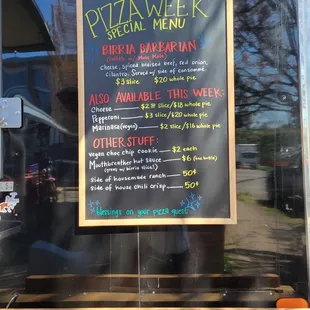 PIZZA WEEK
SPECIAL MENU
BIRRIA BARBARIAN
Cheese, spiced braised beef, red onion,
cilantro. Served w/ side of consommé.
$3 slice $20 whole pie
ALSO AVAILABLE THIS WEEK:
Cheese $2.50 slice/$18 whole pie
Pepperoni $3 slice/$20 whole pie
Marinara (vegan) $2 slice/$16 whole pie
OTHER STUFF:
Vegan choc chip cookie $2 each
Mouthbreather hot sauce $6
side of housemade ranch 50¢
side of house chili crisp 50¢
blessings on your pizza quest